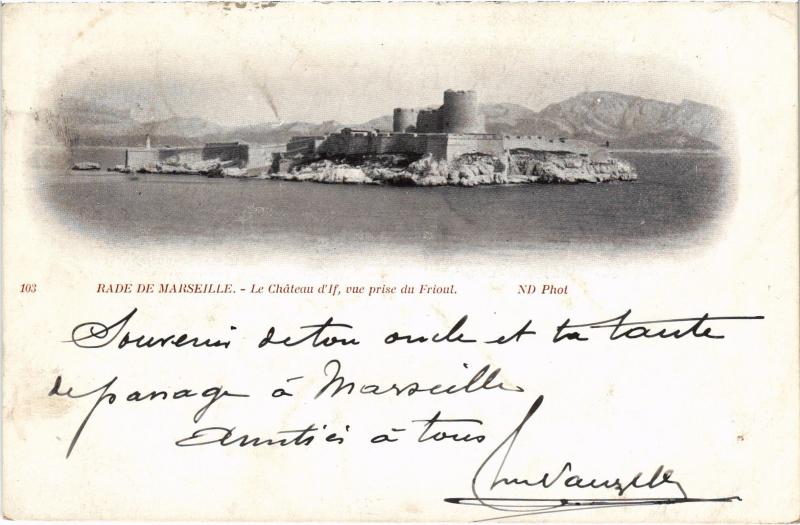 103 RADE DE MARSEILLE. - Le Château d'If, vue prise du Frioul. ND Phot
Souvenir de ton oncle et ta tante
de passage à Marseille
Amitiés à tous